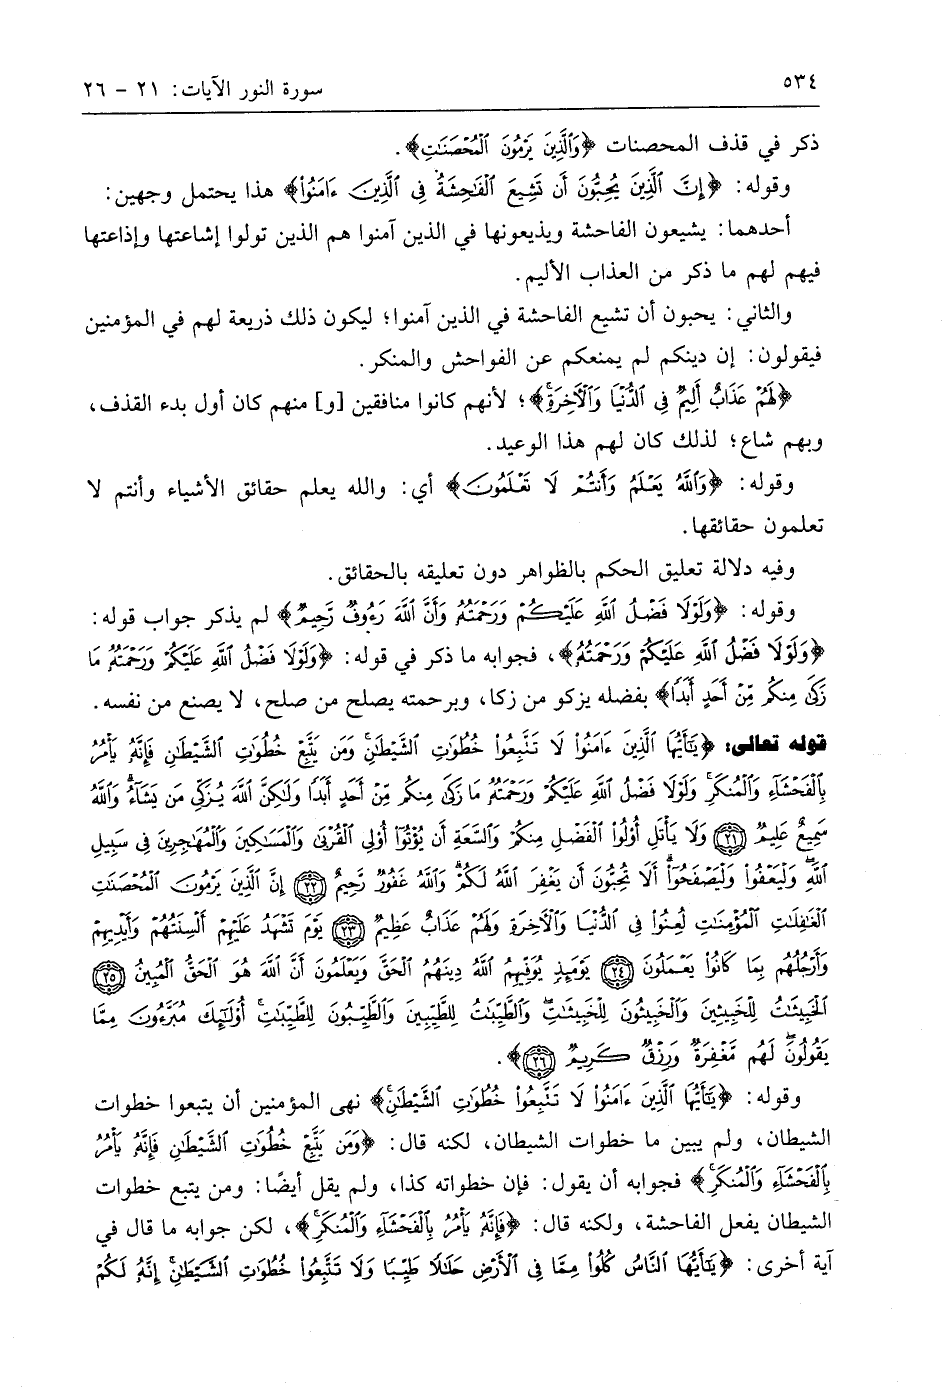 ٥٣٤ سورة النور الآيات: ٢١ - ٢٦
ذكر في قذف المحصنات ﴿وَٱلَّذِينَ يَرۡمُونَ ٱلۡمُحۡصَنَٰتِ﴾.
وقوله: ﴿إِنَّ ٱلَّذِينَ يُحِبُّونَ أَن تَشِيعَ ٱلۡفَٰحِشَةُ فِي ٱلَّذِينَ ءَامَنُواْ﴾ هذا يحتمل وجهين:
أحدهما: يشيعون الفاحشة ويذيعونها في الذين آمنوا هم الذين تولوا إشاعتها وإذاعتها
فيهم لهم ما ذكر من العذاب الأليم.
والثاني: يحبون أن تشيع الفاحشة في الذين آمنوا؛ ليكون ذلك ذريعة لهم في المؤمنين
فيقولون: إن دينكم لم يمنعكم عن الفواحش والمنكر.
﴿لَهُمۡ عَذَابٌ أَلِيمٌ فِي ٱلدُّنۡيَا وَٱلۡأٓخِرَةِۚ﴾؛ لأنهم كانوا منافقين [و] منهم كان أول بدء القذف،
وبهم شاع؛ لذلك كان لهم هذا الوعيد.
وقوله: ﴿وَٱللَّهُ يَعۡلَمُ وَأَنتُمۡ لَا تَعۡلَمُونَ﴾ أي: والله يعلم حقائق الأشياء وأنتم لا
تعلمون حقائقها.
وفيه دلالة تعليق الحكم بالظواهر دون تعليقه بالحقائق.
وقوله: ﴿وَلَوۡلَا فَضۡلُ ٱللَّهِ عَلَيۡكُمۡ وَرَحۡمَتُهُۥ وَأَنَّ ٱللَّهَ رَءُوفٞ رَّحِيمٞ﴾ لم يذكر جواب قوله:
﴿وَلَوۡلَا فَضۡلُ ٱللَّهِ عَلَيۡكُمۡ وَرَحۡمَتُهُۥ﴾، فجوابه ما ذكر في قوله: ﴿وَلَوۡلَا فَضۡلُ ٱللَّهِ عَلَيۡكُمۡ وَرَحۡمَتُهُۥ مَا
زَكَىٰ مِنكُم مِّنۡ أَحَدٍ أَبَدٗا﴾ بفضله يزكو من زكا، وبرحمته يصلح من صلح، لا يصنع من نفسه.
قوله تعالى: ﴿يَٰٓأَيُّهَا ٱلَّذِينَ ءَامَنُواْ لَا تَتَّبِعُواْ خُطُوَٰتِ ٱلشَّيۡطَٰنِۚ وَمَن يَتَّبِعۡ خُطُوَٰتِ ٱلشَّيۡطَٰنِ فَإِنَّهُۥ يَأۡمُرُ
بِٱلۡفَحۡشَآءِ وَٱلۡمُنكَرِۚ وَلَوۡلَا فَضۡلُ ٱللَّهِ عَلَيۡكُمۡ وَرَحۡمَتُهُۥ مَا زَكَىٰ مِنكُم مِّنۡ أَحَدٍ أَبَدٗا وَلَٰكِنَّ ٱللَّهَ يُزَكِّي مَن يَشَآءُۗ وَٱللَّهُ
سَمِيعٌ عَلِيمٞ ٢١ وَلَا يَأۡتَلِ أُوْلُواْ ٱلۡفَضۡلِ مِنكُمۡ وَٱلسَّعَةِ أَن يُؤۡتُوٓاْ أُوْلِي ٱلۡقُرۡبَىٰ وَٱلۡمَسَٰكِينَ وَٱلۡمُهَٰجِرِينَ فِي سَبِيلِ
ٱللَّهِۖ وَلۡيَعۡفُواْ وَلۡيَصۡفَحُوٓاْۗ أَلَا تُحِبُّونَ أَن يَغۡفِرَ ٱللَّهُ لَكُمۡۚ وَٱللَّهُ غَفُورٞ رَّحِيمٌ ٢٢ إِنَّ ٱلَّذِينَ يَرۡمُونَ ٱلۡمُحۡصَنَٰتِ
ٱلۡغَٰفِلَٰتِ ٱلۡمُؤۡمِنَٰتِ لُعِنُواْ فِي ٱلدُّنۡيَا وَٱلۡأٓخِرَةِ وَلَهُمۡ عَذَابٌ عَظِيمٞ ٢٣ يَوۡمَ تَشۡهَدُ عَلَيۡهِمۡ أَلۡسِنَتُهُمۡ وَأَيۡدِيهِمۡ
وَأَرۡجُلُهُم بِمَا كَانُواْ يَعۡمَلُونَ ٢٤ يَوۡمَئِذٖ يُوَفِّيهِمُ ٱللَّهُ دِينَهُمُ ٱلۡحَقَّ وَيَعۡلَمُونَ أَنَّ ٱللَّهَ هُوَ ٱلۡحَقُّ ٱلۡمُبِينُ ٢٥
ٱلۡخَبِيثَٰتُ لِلۡخَبِيثِينَ وَٱلۡخَبِيثُونَ لِلۡخَبِيثَٰتِۖ وَٱلطَّيِّبَٰتُ لِلطَّيِّبِينَ وَٱلطَّيِّبُونَ لِلطَّيِّبَٰتِۚ أُوْلَٰٓئِكَ مُبَرَّءُونَ مِمَّا
يَقُولُونَۖ لَهُم مَّغۡفِرَةٞ وَرِزۡقٞ كَرِيمٞ ٢٦﴾.
وقوله: ﴿يَٰٓأَيُّهَا ٱلَّذِينَ ءَامَنُواْ لَا تَتَّبِعُواْ خُطُوَٰتِ ٱلشَّيۡطَٰنِۚ﴾ نهى المؤمنين أن يتبعوا خطوات
الشيطان، ولم يبين ما خطوات الشيطان، لكنه قال: ﴿وَمَن يَتَّبِعۡ خُطُوَٰتِ ٱلشَّيۡطَٰنِ فَإِنَّهُۥ يَأۡمُرُ
بِٱلۡفَحۡشَآءِ وَٱلۡمُنكَرِۚ﴾ فجوابه أن يقول: فإن خطواته كذا، ولم يقل أيضًا: ومن يتبع خطوات
الشيطان يفعل الفاحشة، ولكنه قال: ﴿فَإِنَّهُۥ يَأۡمُرُ بِٱلۡفَحۡشَآءِ وَٱلۡمُنكَرِۚ﴾، لكن جوابه ما قال في
آية أخرى: ﴿يَٰٓأَيُّهَا ٱلنَّاسُ كُلُواْ مِمَّا فِي ٱلۡأَرۡضِ حَلَٰلٗا طَيِّبٗا وَلَا تَتَّبِعُواْ خُطُوَٰتِ ٱلشَّيۡطَٰنِۚ إِنَّهُۥ لَكُمۡ